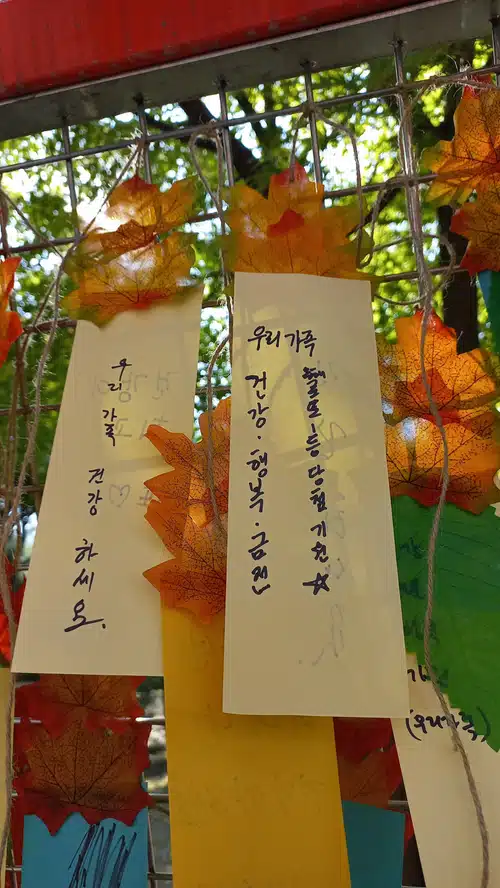 우리 가족
건강
하세요.
우리가족
건강·행복·금전
로또1등당첨기원☆
(우리가족)